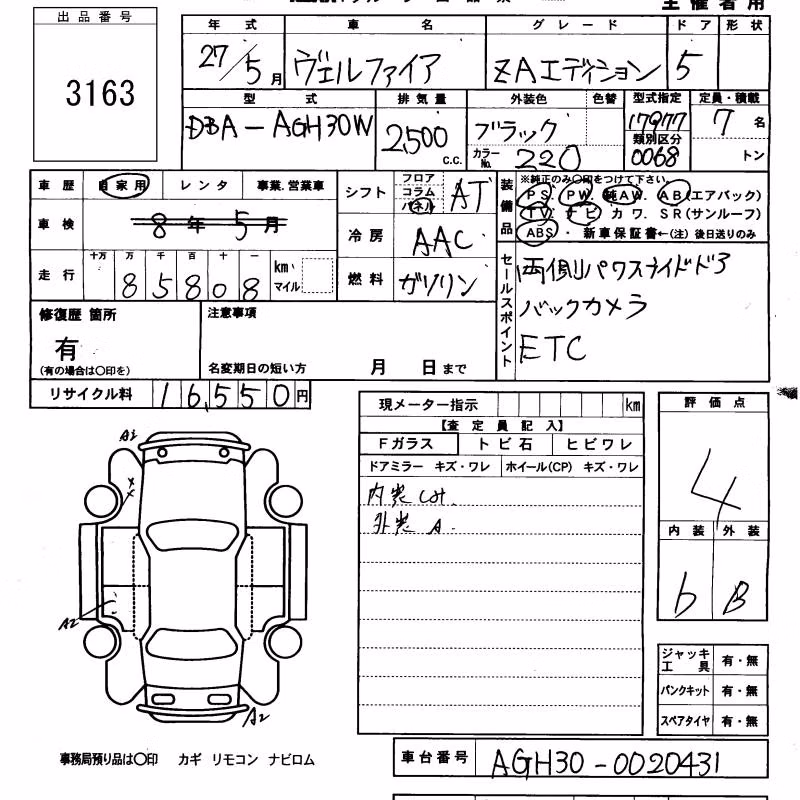 主催者用
出品番号
3163
年式 車名 グレード ドア 形状
27/5月 ヴェルファイア ZAエディション 5
型式 排気量 外装色 色替 型式指定 定員・積載
DBA-AGH30W 2,500 c.c. ブラック 17977 7名
カラーNo. 220 類別区分 0068 トン
車歴 自家用 レンタ 事業.営業車
車検 8年5月
走行 十万 万 千 百 十 一
85808 km. マイル
シフト フロア コラム パネル AT
冷房 AAC
燃料 ガソリン
装備品 ※純正のみ〇印をつけて下さい。
PS. PW. 純AW. AB(エアバック)
TV. ナビ カワ. SR(サンルーフ)
ABS・ 新車保証書←(注) 後日送りのみ
セールスポイント
両側パワスライドドア
バックカメラ
ETC
修復歴 箇所 注意事項
有
(有の場合は〇印を) 名変期日の短い方 月 日まで
リサイクル料 16,550円
現メーター指示 km
【査定員記入】
Fガラス トビ石 ヒビワレ
ドアミラー キズ・ワレ ホイール(CP) キズ・ワレ
内装
外装 A.
評価点
4
内装 外装
b B
A2
A2
A2
ジャッキ工具 有・無
パンクキット 有・無
スペアタイヤ 有・無
事務局預り品は〇印 カギ リモコン ナビロム
車台番号 AGH30-0020431